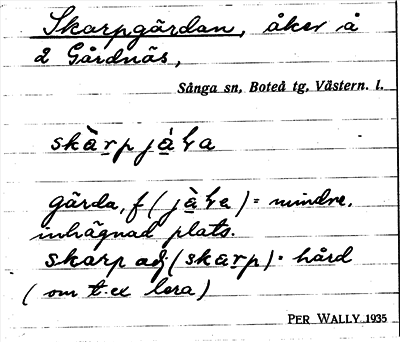 Skarpgärdan, åker å
2 Gårdnäs,
Sånga sn, Boteå tg, Västern. l.
skàrp jáɫa
gärda, f (jàɫa) = mindre,
inhägnad plats.
skarp adj (skarp) = hård
(om t.ex lera)
PER WALLY 1935